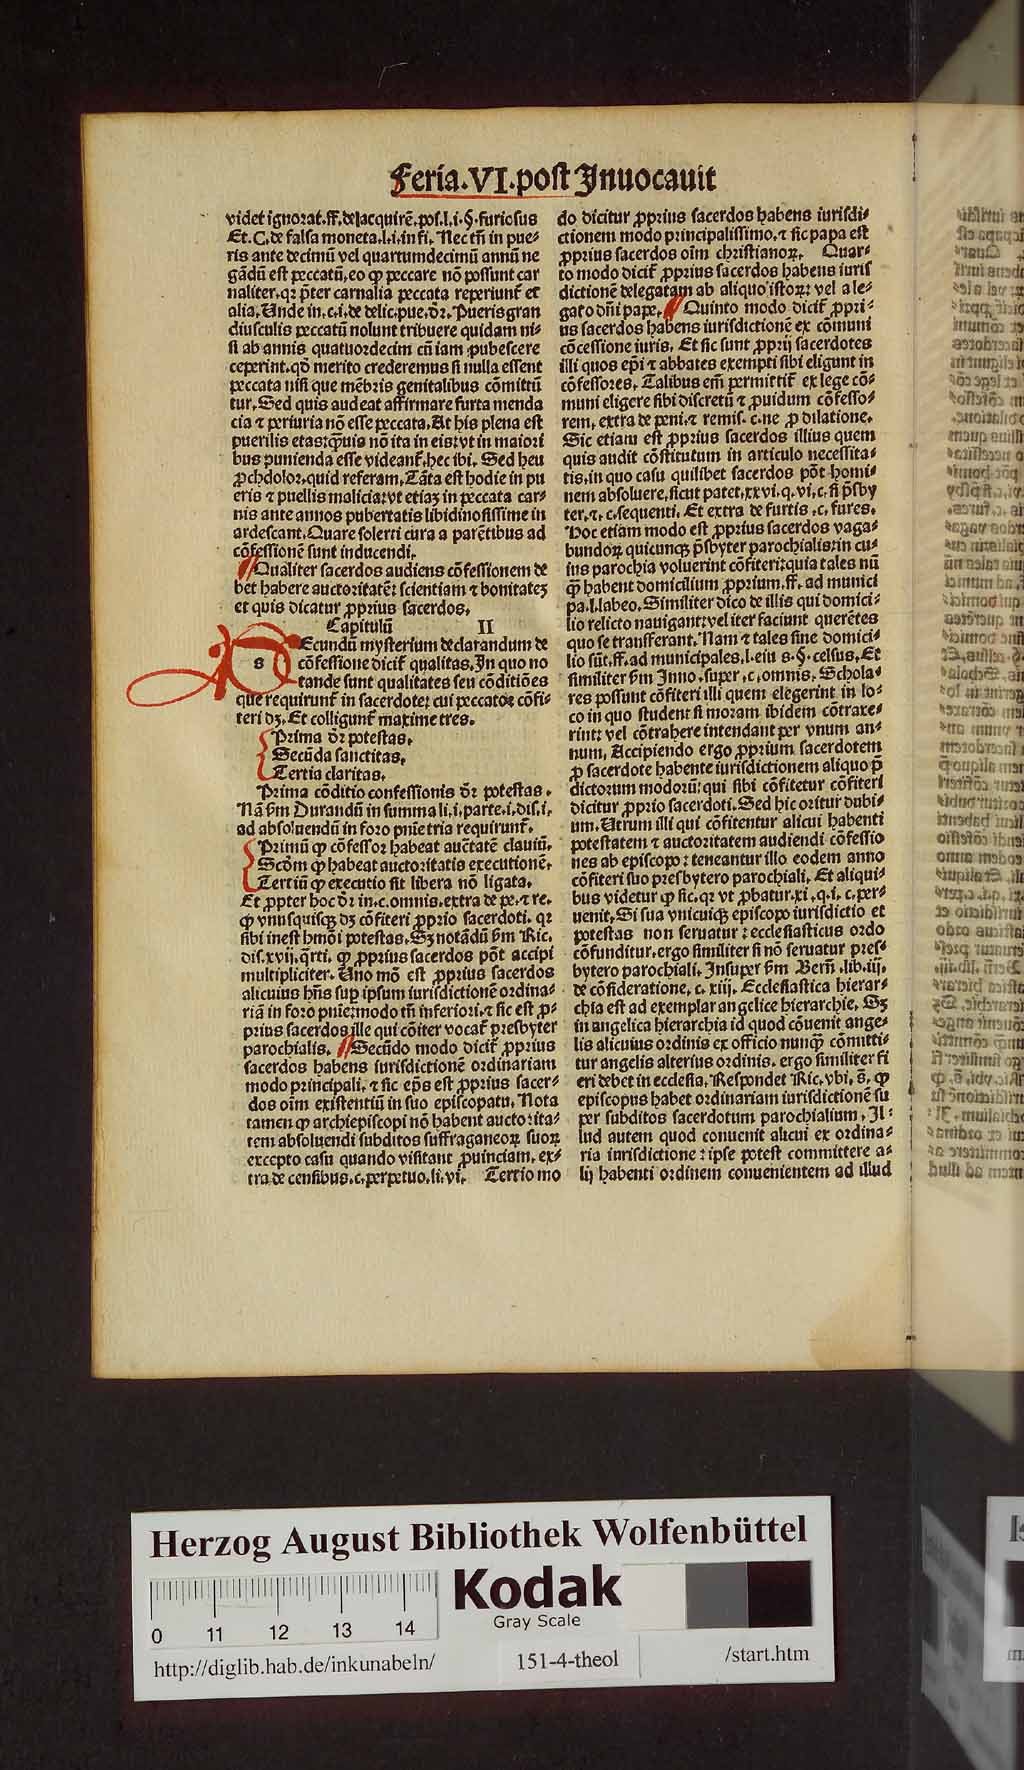 Feria.VI.post Inuocauit
videt ignorat.ff.de acquirē.pos.l.i.§.furiosus
Et.C.de falsa moneta.l.i.in fi. Nec tñ in pue⸗
ris ante decimū vel quartumdecimū annū ne
gādū est peccatū,eo ꝙ peccare nō possunt car
naliter.qꝛ p̄ter carnalia peccata reperiunt̄ et
alia. Unde in.c.i.de delic.pue.dꝛ. Pueris gran
diusculis peccatū nolunt tribuere quidam ni⸗
si ab annis quatuordecim cū iam pubescere
ceperint.qd̄ merito crederemus si nulla essent
peccata nisi que mēbris genitalibus cōmittū
tur. Sed quis audeat affirmare furta menda
cia ⁊ periuria nō esse peccata. At his plena est
puerilis etas:qꝫuis nō ita in eis:vt in maiori
bus punienda esse videant̄.hec ibi. Sed heu
ꝓchdolor.quid referam. Tāta est hodie in pu
eris ⁊ puellis malicia:vt etiaꝫ in peccata car⸗
nis ante annos pubertatis libidinosissime in
ardescant. Quare solerti cura a parētibus ad
cōfessionē sunt inducendi.
Qualiter sacerdos audiens cōfessionem de
bet habere auctoritatē: scientiam ⁊ bonitateꝫ
et quis dicatur ꝓprius sacerdos.
Capitulū II
s Ecundū mysterium declarandum de
cōfessione dicit̄ qualitas. In quo no
tande sunt qualitates seu cōditiōes
que requirunt̄ in sacerdote: cui peccator cōfi⸗
teri dꝫ. Et colligunt̄ maxime tres.
Prima dꝛ potestas.
Secūda sanctitas.
Tertia claritas.
Prima cōditio confessionis dꝛ potestas.
Nā ẜm Durandū in summa li.i.parte.i.dis.i.
ad absoluendū in foro pnīe tria requirunt̄.
Primū ꝙ cōfessor habeat auctatē clauiū.
Scōm ꝙ habeat auctoritatis executionē.
Tertiū ꝙ executio sit libera nō ligata.
Et ꝓpter hoc dꝛ in.c.omnis.extra de pe.⁊ re.
ꝙ vnusquisqꝫ dꝫ cōfiteri ꝓprio sacerdoti. qꝛ
sibi inest hmōi potestas. Sꝫ notādū ẜm Ric.
dis.xvij.q̄rti. ꝙ ꝓprius sacerdos pōt accipi
multipliciter. Uno mō est ꝓprius sacerdos
alicuius hn̄s sup ipsum iurisdictionē ordina⸗
riā in foro pnīe:modo tñ inferiori.⁊ sic est ꝓ⸗
prius sacerdos ille qui cōiter vocat̄ presbyter
parochialis. Secūdo modo dicit̄ ꝓprius
sacerdos habens iurisdictionē ordinariam
modo principali. ⁊ sic ep̄s est ꝓprius sacer⸗
dos oīm existentiū in suo episcopatu. Nota
tamen ꝙ archiepiscopi nō habent auctorita⸗
tem absoluendi subditos suffraganeoꝝ suoꝝ
excepto casu quando visitant ꝓuinciam. ex⸗
tra de censibus.c.perpetuo.li.vi. Tertio mo
do dicitur ꝓprius sacerdos habens iurisdi⸗
ctionem modo principalissimo.⁊ sic papa est
ꝓprius sacerdos oīm christianoꝝ. Quar⸗
to modo dicit̄ ꝓprius sacerdos habens iuris
dictionē delegatam ab aliquo istoꝝ: vel a le⸗
gato dn̄i pape. Quinto modo dicit̄ ꝓpri⸗
us sacerdos habens iurisdictionē ex cōmuni
cōcessione iuris. Et sic sunt ꝓprij sacerdotes
illi quos ep̄i ⁊ abbates exempti sibi eligunt in
cōfessores. Talibus em̄ permittit̄ ex lege cō⸗
muni eligere sibi discretū ⁊ ꝓuidum cōfesso⸗
rem. extra de peni.⁊ remis. c.ne ꝓ dilatione.
Sic etiam est ꝓprius sacerdos illius quem
quis audit cōstitutum in articulo necessita⸗
tis.in quo casu quilibet sacerdos pōt homi⸗
nem absoluere.sicut patet.xxvi.q.vi.c.si p̄sby
ter.⁊.c.sequenti. Et extra de furtis.c.fures.
Hoc etiam modo est ꝓprius sacerdos vaga⸗
bundoꝝ quicunqꝫ p̄sbyter parochialis:in cu⸗
ius parochia voluerint cōfiteri:quia tales nū
qꝫ habent domicilium ꝓprium.ff. ad munici
pa.l.labeo. Similiter dico de illis qui domici⸗
lio relicto nauigant:vel iter faciunt querētes
quo se transferant. Nam ⁊ tales sine domici⸗
lio sūt.ff.ad municipales.l.eius §.celsus. Et
similiter ẜm Inno.super.c.omnis. Schola⸗
res possunt cōfiteri illi quem elegerint in lo⸗
co in quo student si moram ibidem cōtraxe⸗
rint: vel cōtrahere intendant per vnum an⸗
num. Accipiendo ergo ꝓprium sacerdotem
ꝓ sacerdote habente iurisdictionem aliquo p̄
dictorum modorū: qui sibi cōfitetur cōfiteri
dicitur ꝓprio sacerdoti. Sed hic oritur dubi⸗
um. Utrum illi qui cōfitentur alicui habenti
potestatem ⁊ auctoritatem audiendi cōfessio
nes ab episcopo: teneantur illo eodem anno
cōfiteri suo presbytero parochiali. Et aliqui⸗
bus videtur ꝙ sic.qꝛ vt ꝓbatur.xi.q.i. c.per⸗
uenit. Si sua vnicuiqꝫ episcopo iurisdictio et
potestas non seruatur: ecclesiasticus ordo
cōfunditur.ergo similiter si nō seruatur pres⸗
bytero parochiali. Insuper ẜm Bern̄.lib.iij.
de cōsideratione. c.xiij. Ecclesiastica hierar⸗
chia est ad exemplar angelice hierarchie. Sꝫ
in angelica hierarchia id quod cōuenit ange⸗
lis alicuius ordinis ex officio nunqꝫ cōmitti⸗
tur angelis alterius ordinis. ergo similiter fi
eri debet in ecclesia. Respondet Ric.vbi.s̄. ꝙ
episcopus habet ordinariam iurisdictionē su
per subditos sacerdotum parochialium. Il⸗
lud autem quod conuenit alicui ex ordina⸗
ria iurisdictione: ipse potest committere a⸗
lij habenti ordinem conuenientem ad illud
Herzog August Bibliothek Wolfenbüttel
Kodak
Gray Scale
0 11 12 13 14
http://diglib.hab.de/inkunabeln/ 151-4-theol /start.htm